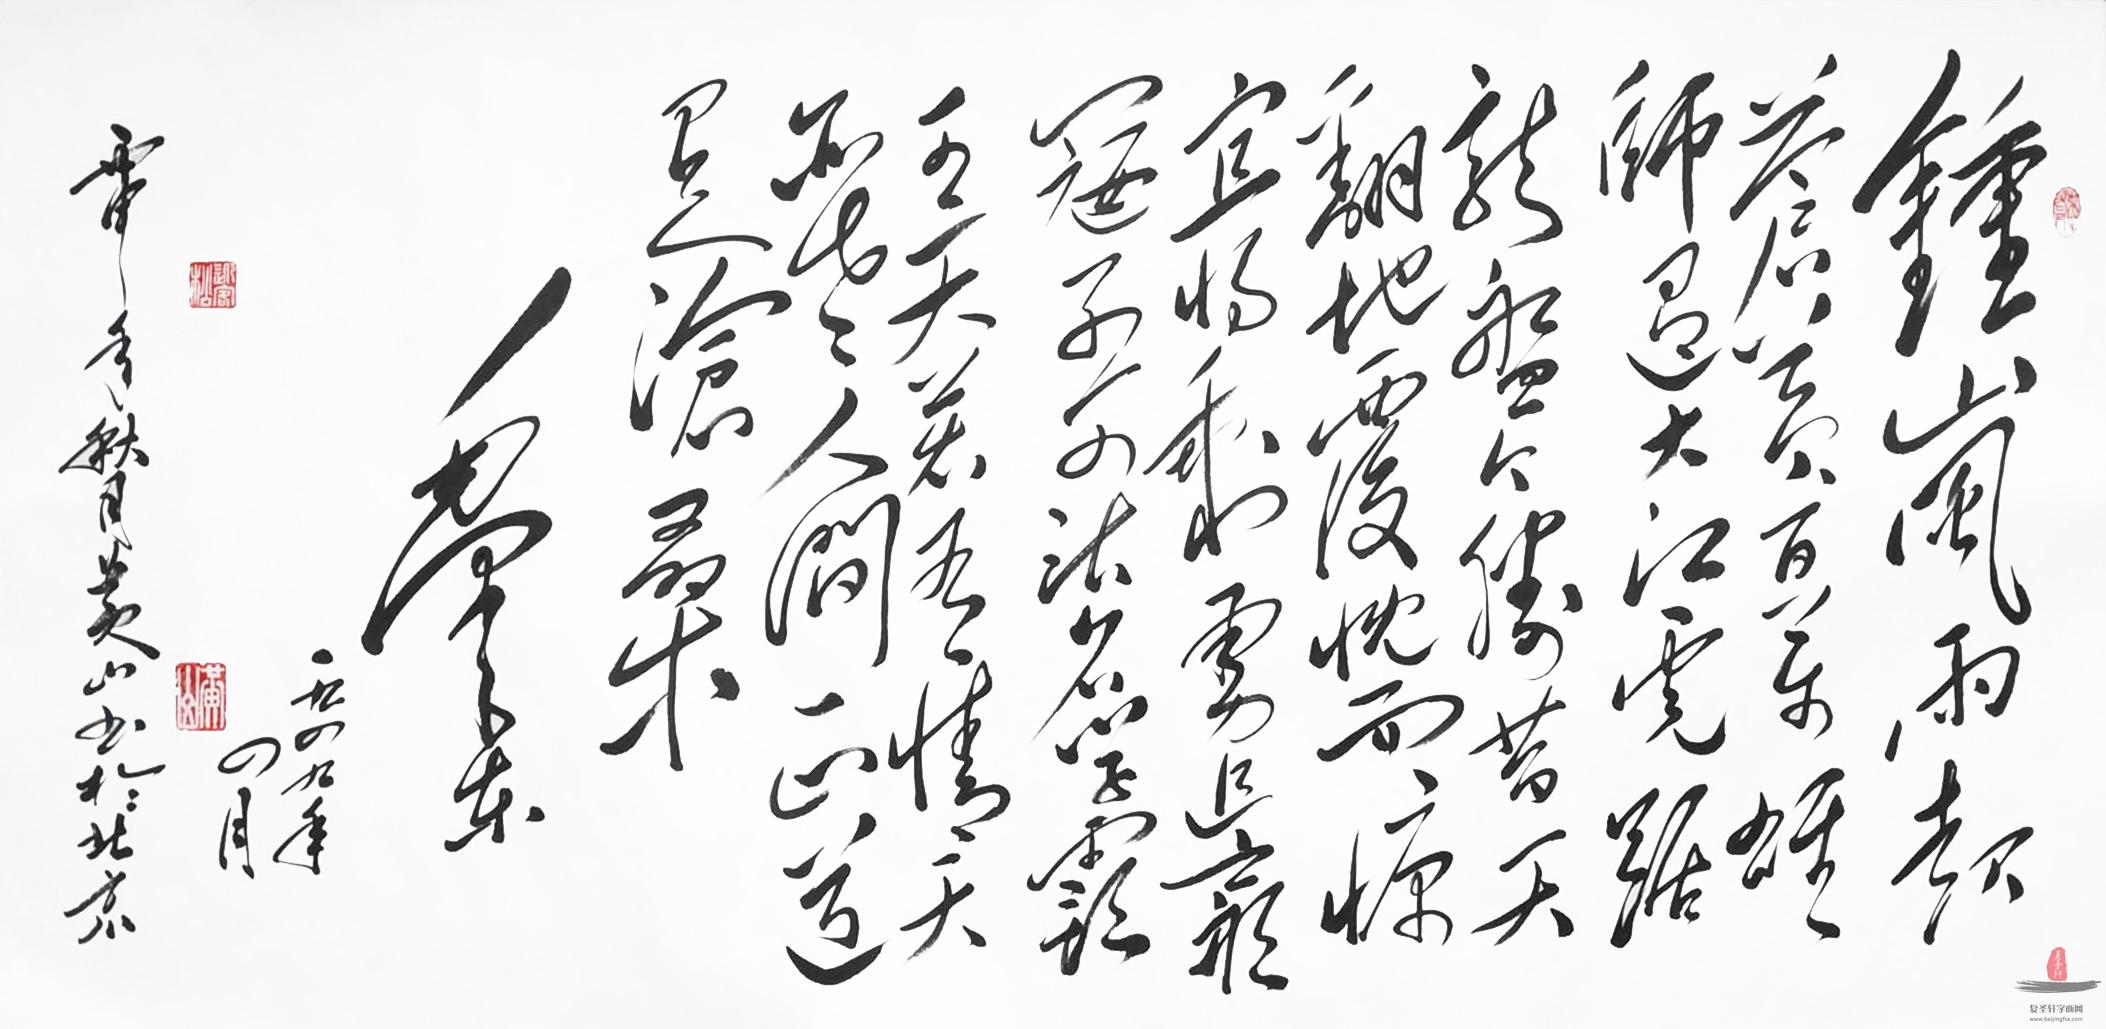 鍾山風雨起
蒼黄百萬雄
師過大江虎踞
龍盤今勝昔天
翻地覆慨而慷
宜将剩勇追窮
寇不可沽名學霸
王天若有情天
亦老人間正道
是滄桑
毛澤東
一九四九年
四月
年秋月黄山书於北京
迎客松
黄山
复圣轩字画网
www.beijingfsx.com